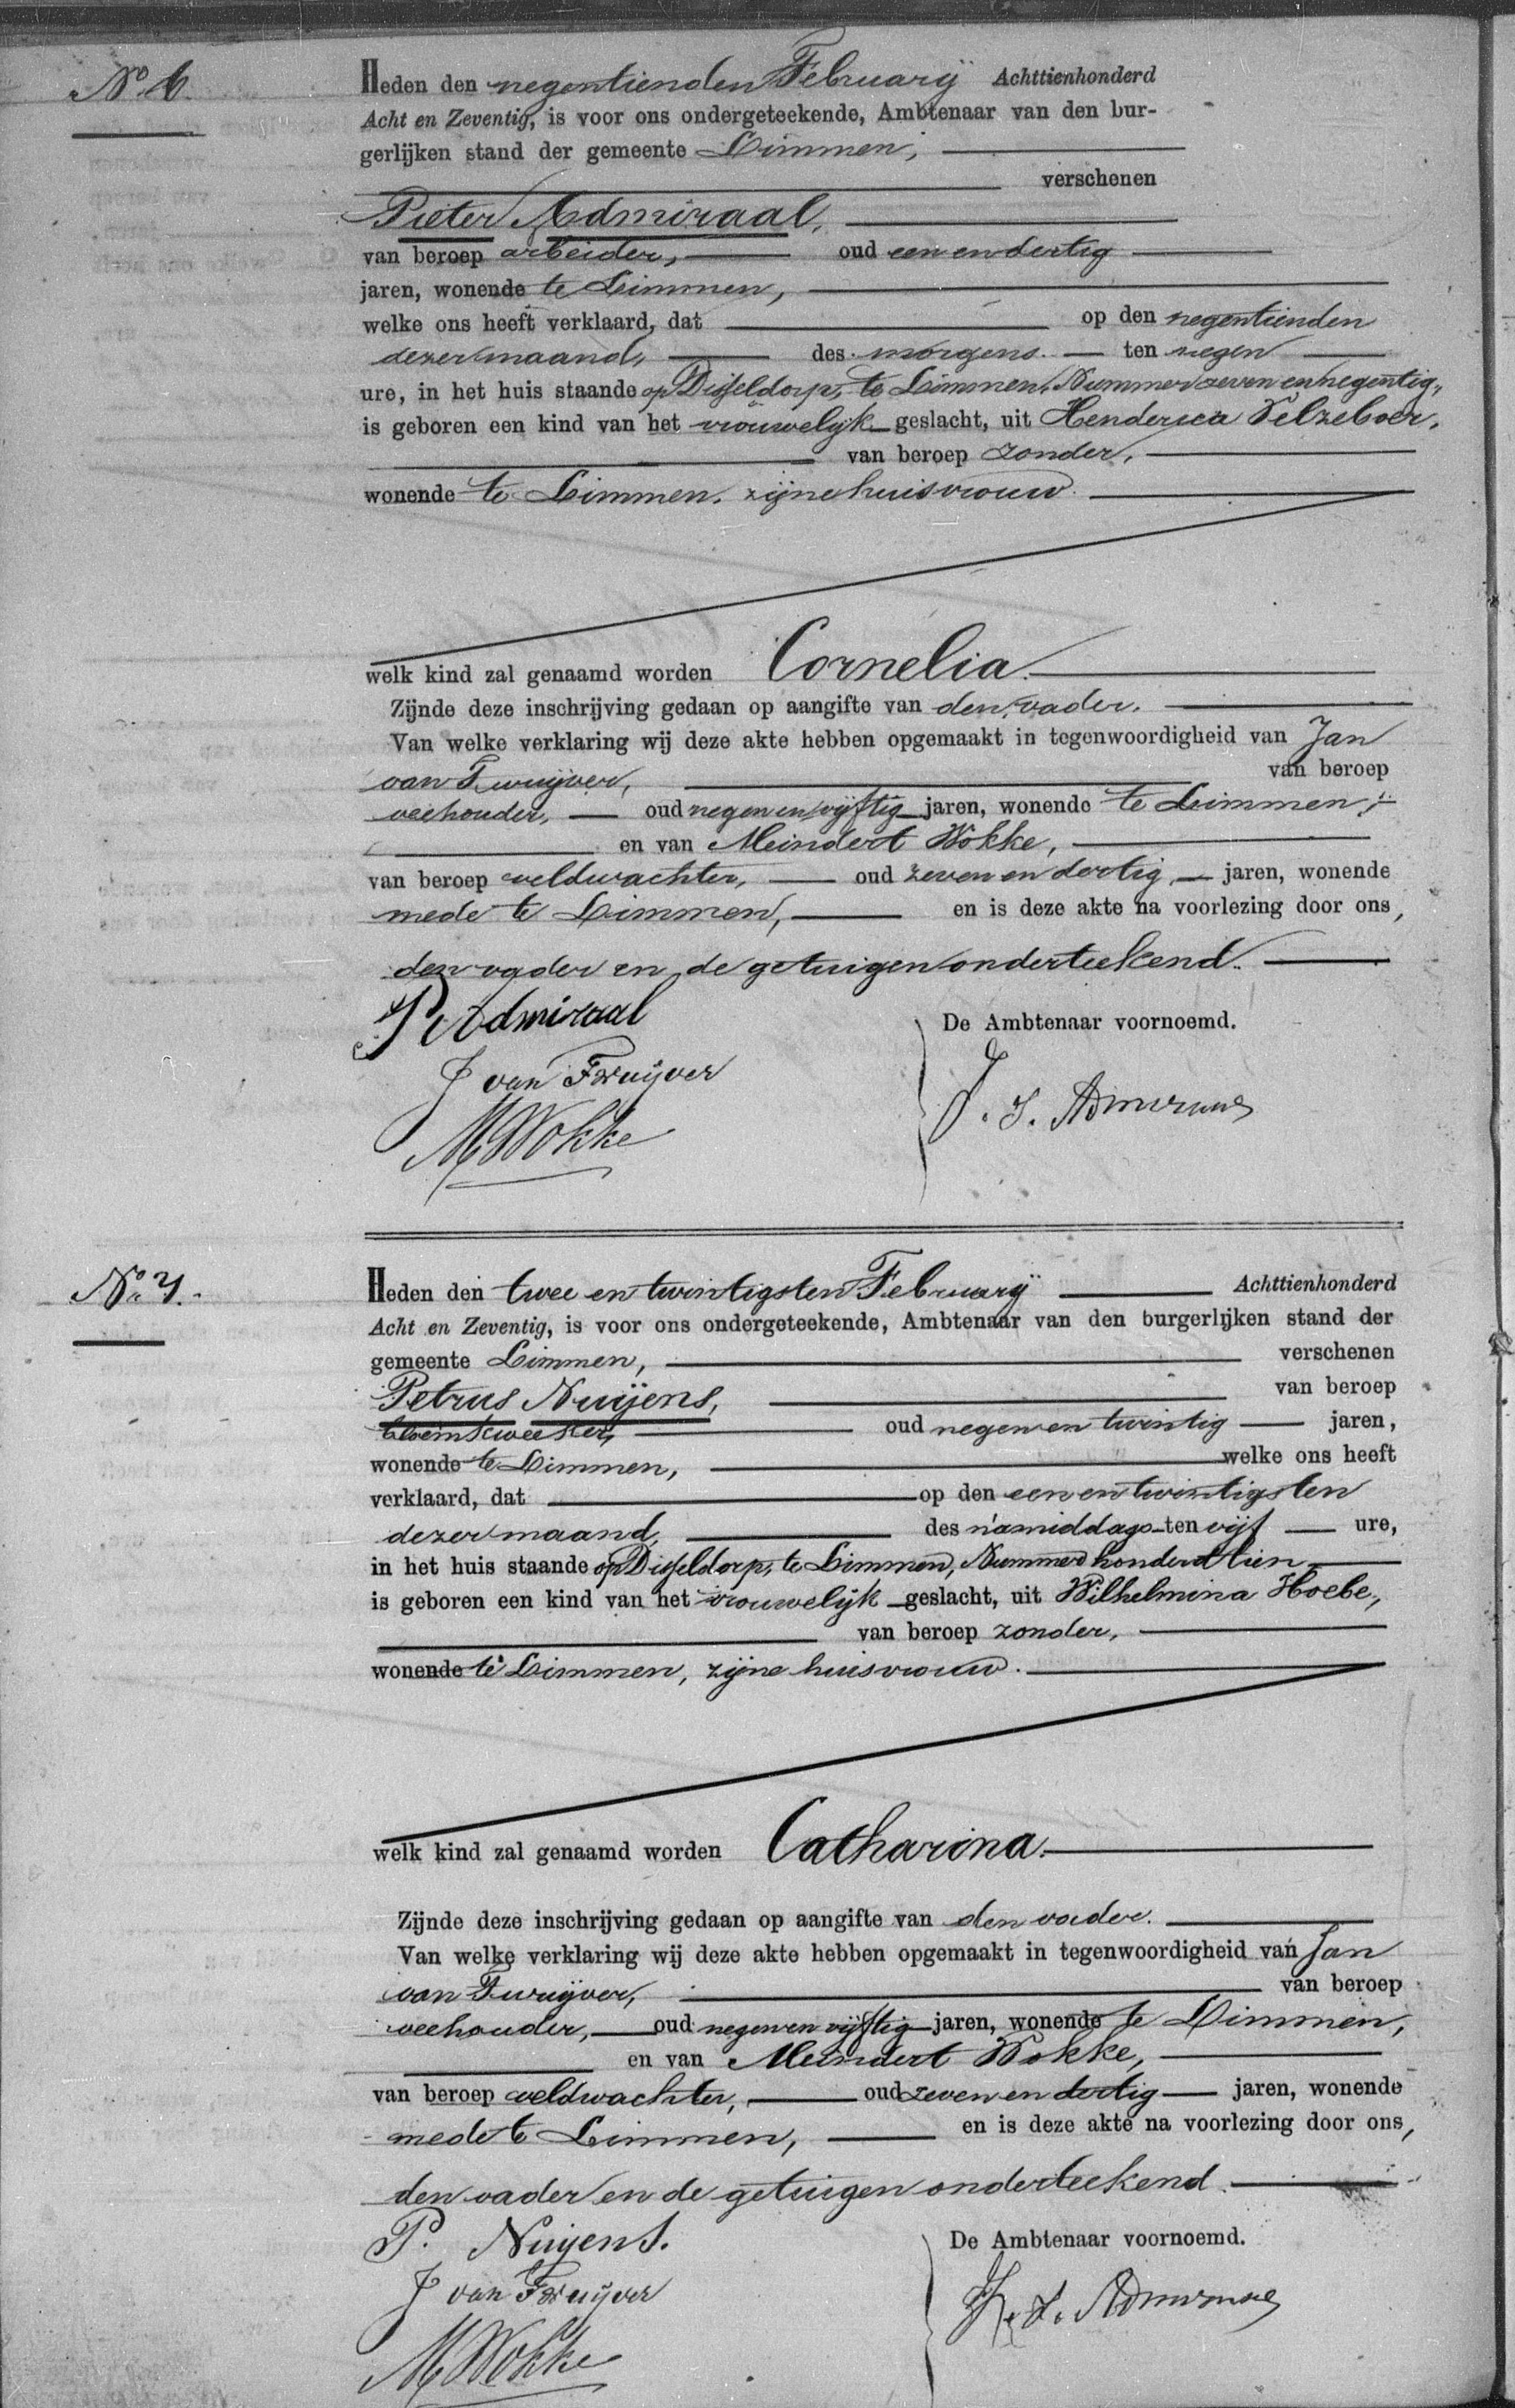 No 6.
Heden den negentienden Februarij Achttienhonderd
Acht en Zeventig, is voor ons ondergeteekende, Ambtenaar van den bur-
gerlijken stand der gemeente Limmen,
verschenen
Pieter Admiraal,
van beroep arbeider, oud een en dertig
jaren, wonende te Limmen,
welke ons heeft verklaard, dat op den negentienden
dezer maand, des morgens ten negen
ure, in het huis staande op Disseldorp, te Limmen, Nummer zeven en negentig,
is geboren een kind van het vrouwelijk geslacht, uit Henderica Velzeboer,
van beroep zonder,
wonende te Limmen, zijne huisvrouw.
welk kind zal genaamd worden Cornelia.
Zijnde deze inschrijving gedaan op aangifte van den vader.
Van welke verklaring wij deze akte hebben opgemaakt in tegenwoordigheid van Jan
van Twuijver, van beroep
veehouder, oud negen en vijftig jaren, wonende te Limmen,
en van Meindert Wokke,
van beroep veldwachter, oud zeven en dertig jaren, wonende
mede te Limmen, en is deze akte na voorlezing door ons,
den vader en de getuigen onderteekend.
P Admiraal
De Ambtenaar voornoemd.
J van Twuijver
M Wokke
No 7.
Heden den twee en twintigsten Februarij Achttienhonderd
Acht en Zeventig, is voor ons ondergeteekende, Ambtenaar van den burgerlijken stand der
gemeente Limmen, verschenen
Petrus Nuijens, van beroep
bloemkweeker, oud negen en twintig jaren,
wonende te Limmen, welke ons heeft
verklaard, dat op den een en twintigsten
dezer maand, des namiddags ten vijf ure,
in het huis staande op Disseldorp, te Limmen, Nummer honderd tien
is geboren een kind van het vrouwelijk geslacht, uit Wilhelmina Hoebe,
van beroep zonder,
wonende te Limmen, zijne huisvrouw.
welk kind zal genaamd worden Catharina.
Zijnde deze inschrijving gedaan op aangifte van den vader.
Van welke verklaring wij deze akte hebben opgemaakt in tegenwoordigheid van Jan
van Twuijver, van beroep
veehouder, oud negen en vijftig jaren, wonende te Limmen,
en van Meindert Wokke,
van beroep veldwachter, oud zeven en dertig jaren, wonende
mede te Limmen, en is deze akte na voorlezing door ons,
den vader en de getuigen onderteekend.
P. Nuijens.
De Ambtenaar voornoemd.
J van Twuijver
M Wokke